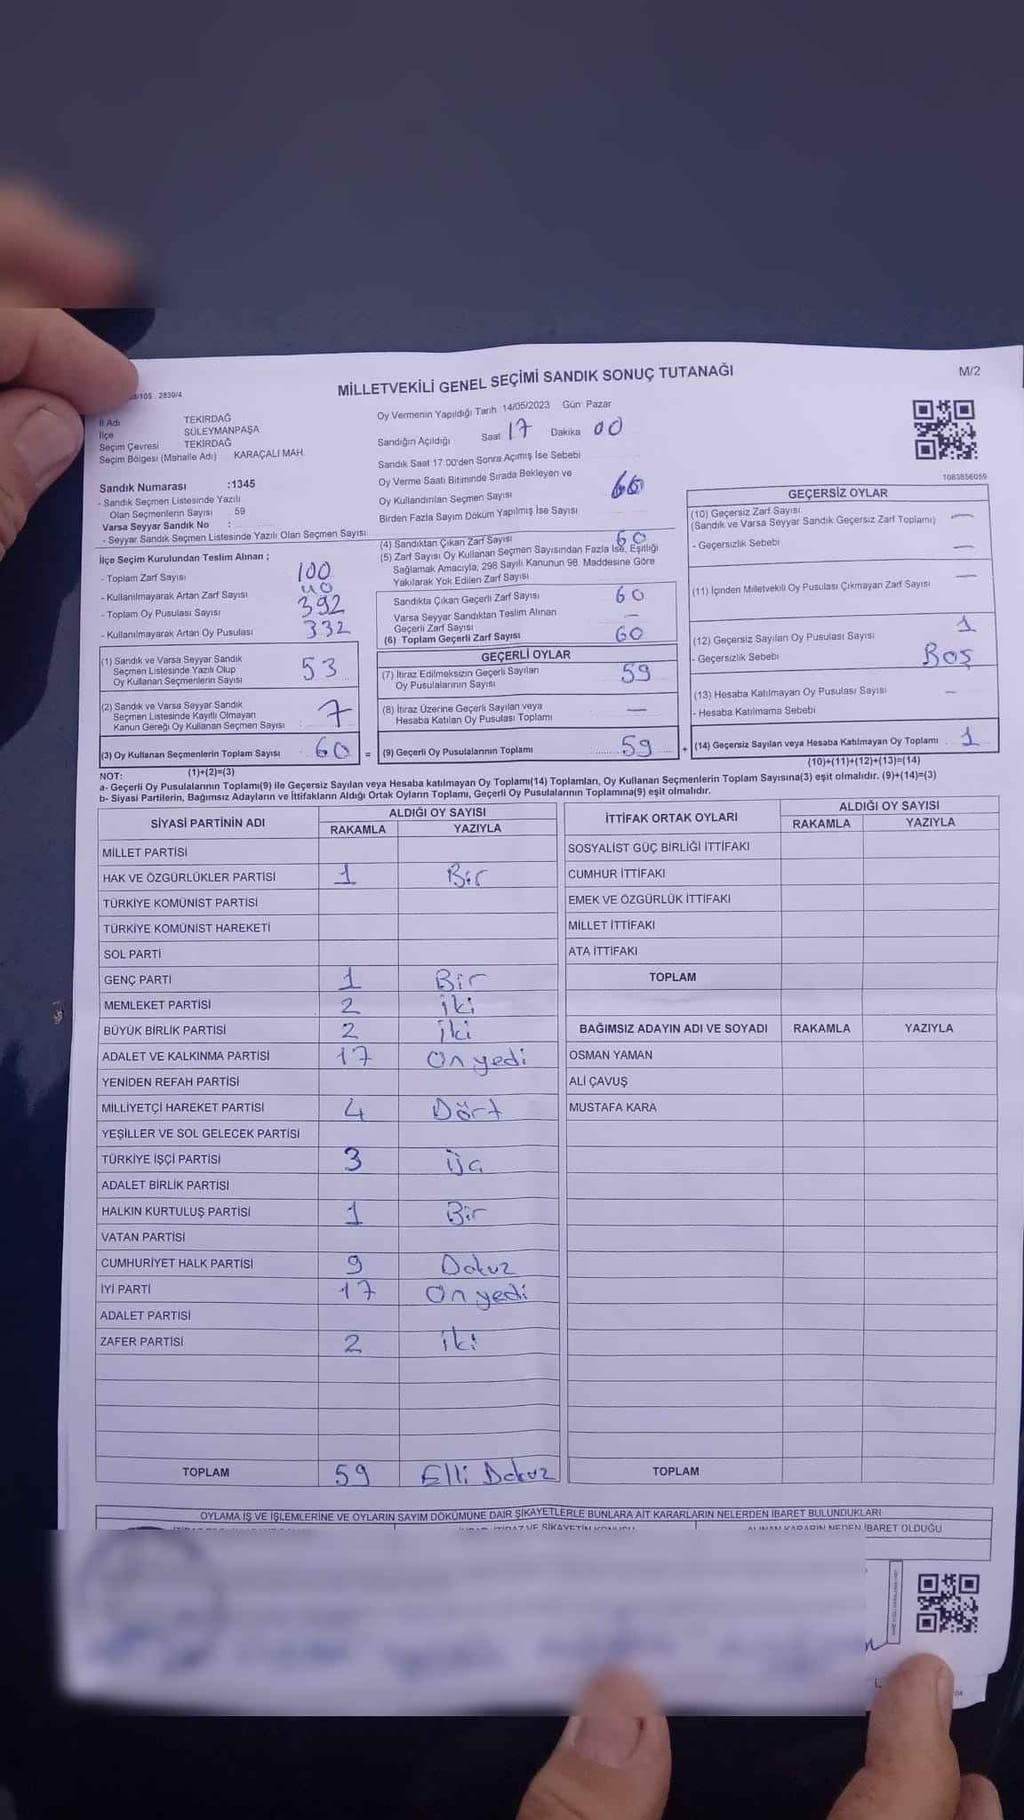 MİLLETVEKİLİ GENEL SEÇİMİ SANDIK SONUÇ TUTANAĞI
M/2
İl Adı TEKİRDAĞ
İlçe SÜLEYMANPAŞA
Seçim Çevresi TEKİRDAĞ
Seçim Bölgesi (Mahalle Adı) KARAÇALI MAH.
Oy Vermenin Yapıldığı Tarih 14/05/2023 Gün: Pazar
Sandığın Açıldığı Saat 17 Dakika 00
Sandık Saat 17:00'den Sonra Açımış İse Sebebi
Oy Verme Saati Bitiminde Sırada Bekleyen ve
Oy Kullandırılan Seçmen Sayısı
Birden Fazla Sayım Döküm Yapılmış İse Sayısı
1083856059
Sandık Numarası :1345
- Sandık Seçmen Listesinde Yazılı
Olan Seçmenlerin Sayısı 59
Varsa Seyyar Sandık No :
- Seyyar Sandık Seçmen Listesinde Yazılı Olan Seçmen Sayısı:
İlçe Seçim Kurulundan Teslim Alınan ;
- Toplam Zarf Sayısı 100
- Kullanılmayarak Artan Zarf Sayısı 40
- Toplam Oy Pusulası Sayısı 392
- Kullanılmayarak Artan Oy Pusulası 332
(1) Sandık ve Varsa Seyyar Sandık
Seçmen Listesinde Yazılı Olup
Oy Kullanan Seçmenlerin Sayısı 53
(2) Sandık ve Varsa Seyyar Sandık
Seçmen Listesinde Kayıtlı Olmayan
Kanun Gereği Oy Kullanan Seçmen Sayısı 7
(3) Oy Kullanan Seçmenlerin Toplam Sayısı 60 =
(1)+(2)=(3)
(4) Sandıktan Çıkan Zarf Sayısı 60
(5) Zarf Sayısı Oy Kullanan Seçmen Sayısından Fazla İse, Eşitliği
Sağlamak Amacıyla, 298 Sayılı Kanunun 98. Maddesine Göre
Yakılarak Yok Edilen Zarf Sayısı
Sandıkta Çıkan Geçerli Zarf Sayısı 60
Varsa Seyyar Sandıktan Teslim Alınan
Geçerli Zarf Sayısı —
(6) Toplam Geçerli Zarf Sayısı 60
GEÇERLİ OYLAR
(7) İtiraz Edilmeksizin Geçerli Sayılan
Oy Pusulalarının Sayısı 59
(8) İtiraz Üzerine Geçerli Sayılan veya
Hesaba Katılan Oy Pusulası Toplamı —
(9) Geçerli Oy Pusulalarının Toplamı 59 +
GEÇERSİZ OYLAR
(10) Geçersiz Zarf Sayısı
(Sandık ve Varsa Seyyar Sandık Geçersiz Zarf Toplamı) —
- Geçersizlik Sebebi —
(11) İçinden Milletvekili Oy Pusulası Çıkmayan Zarf Sayısı —
(12) Geçersiz Sayılan Oy Pusulası Sayısı 1
- Geçersizlik Sebebi Boş
(13) Hesaba Katılmayan Oy Pusulası Sayısı —
- Hesaba Katılmama Sebebi
(14) Geçersiz Sayılan veya Hesaba Katılmayan Oy Toplamı 1
(10)+(11)+(12)+(13)=(14)
NOT:
a- Geçerli Oy Pusulalarının Toplamı(9) ile Geçersiz Sayılan veya Hesaba katılmayan Oy Toplamı(14) Toplamları, Oy Kullanan Seçmenlerin Toplam Sayısına(3) eşit olmalıdır. (9)+(14)=(3)
b- Siyasi Partilerin, Bağımsız Adayların ve İttifakların Aldığı Ortak Oyların Toplamı, Geçerli Oy Pusulalarının Toplamına(9) eşit olmalıdır.
SİYASİ PARTİNİN ADI ALDIĞI OY SAYISI
RAKAMLA YAZIYLA
MİLLET PARTİSİ
HAK VE ÖZGÜRLÜKLER PARTİSİ 1 Bir
TÜRKİYE KOMÜNİST PARTİSİ
TÜRKİYE KOMÜNİST HAREKETİ
SOL PARTİ
GENÇ PARTİ 1 Bir
MEMLEKET PARTİSİ 2 iki
BÜYÜK BİRLİK PARTİSİ 2 iki
ADALET VE KALKINMA PARTİSİ 17 On yedi
YENİDEN REFAH PARTİSİ
MİLLİYETÇİ HAREKET PARTİSİ 4 Dört
YEŞİLLER VE SOL GELECEK PARTİSİ
TÜRKİYE İŞÇİ PARTİSİ 3 Üç
ADALET BİRLİK PARTİSİ
HALKIN KURTULUŞ PARTİSİ 1 Bir
VATAN PARTİSİ
CUMHURİYET HALK PARTİSİ 9 Dokuz
İYİ PARTİ 17 On yedi
ADALET PARTİSİ
ZAFER PARTİSİ 2 iki
TOPLAM 59 Elli Dokuz
İTTİFAK ORTAK OYLARI ALDIĞI OY SAYISI
RAKAMLA YAZIYLA
SOSYALİST GÜÇ BİRLİĞİ İTTİFAKI
CUMHUR İTTİFAKI
EMEK VE ÖZGÜRLÜK İTTİFAKI
MİLLET İTTİFAKI
ATA İTTİFAKI
TOPLAM
BAĞIMSIZ ADAYIN ADI VE SOYADI RAKAMLA YAZIYLA
OSMAN YAMAN
ALİ ÇAVUŞ
MUSTAFA KARA
TOPLAM
OYLAMA İŞ VE İŞLEMLERİNE VE OYLARIN SAYIM DÖKÜMÜNE DAİR ŞİKAYETLERLE BUNLARA AİT KARARLARIN NELERDEN İBARET BULUNDUKLARI
ALINAN KARARIN NEDEN İBARET OLDUĞU